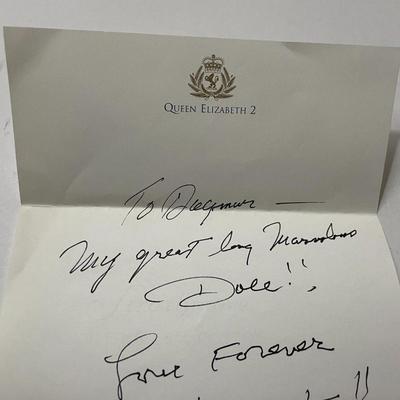 QUEEN ELIZABETH 2
To
My great long Marvelous
Dole!!
Love Forever